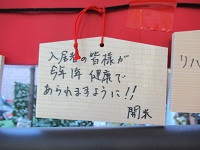 入居者の皆様が
今年1年 健康で
あられますように!!
開米
リハ